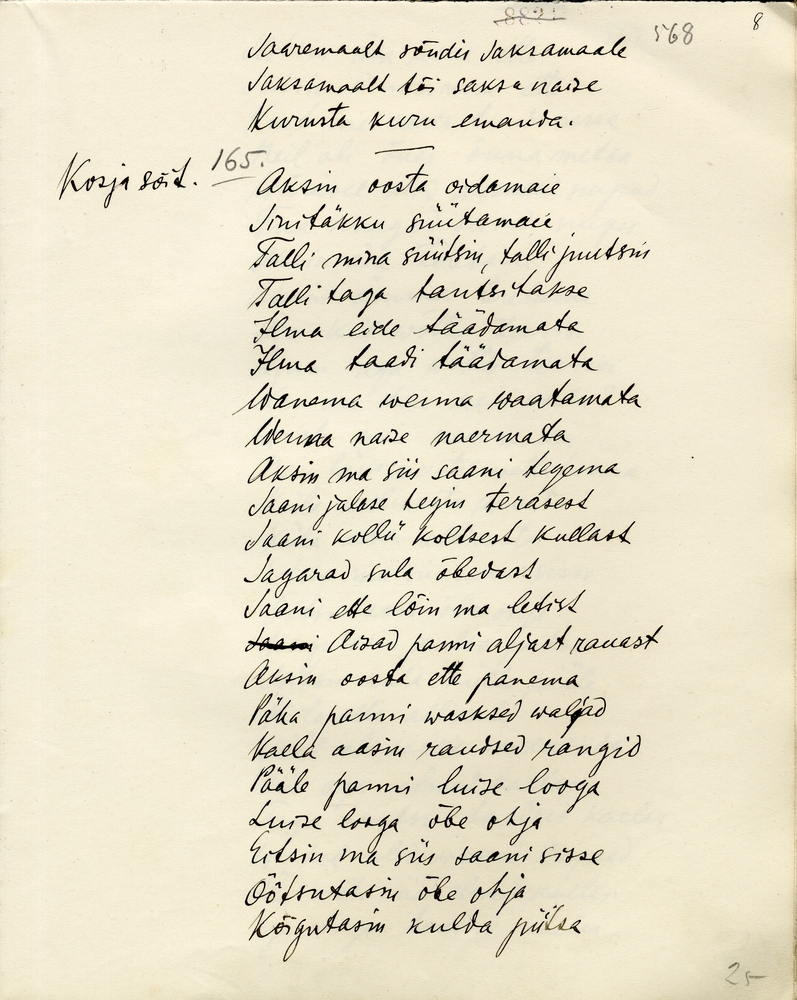 568 8
Saaremaalt sõudis Saksamaale
Saksamaalt tõi saksa naise
Kurusta kuru emanda.
Kosja sõit. 165.
Aksin oosta oidamaie
Sinitäkku süütamaie
Talli mina süütsin, talli juutsin
Talli taga tantsitakse
Ilma eide täädamata
Ilma taadi täädamata
Wanema wenna waatamata
Wenna naise naermata
Aksin ma siis saani tegema
Saani jalase tegin terasest
Saani kollü koltsest kullast
Sagarad sula õbedast
Saani ette lõin ma letist
Saani Aisad panni aljast rauast
Aksin oosta ette panema
Päha panni wasksed waljad
Kaela aasin raudsed rangid
Pääle panni luise looga
Luise looga õbe ohja
Eitsin ma siis saani sisse
Öötsutasin õbe ohja
Kõigutasin kulda piitsa
25